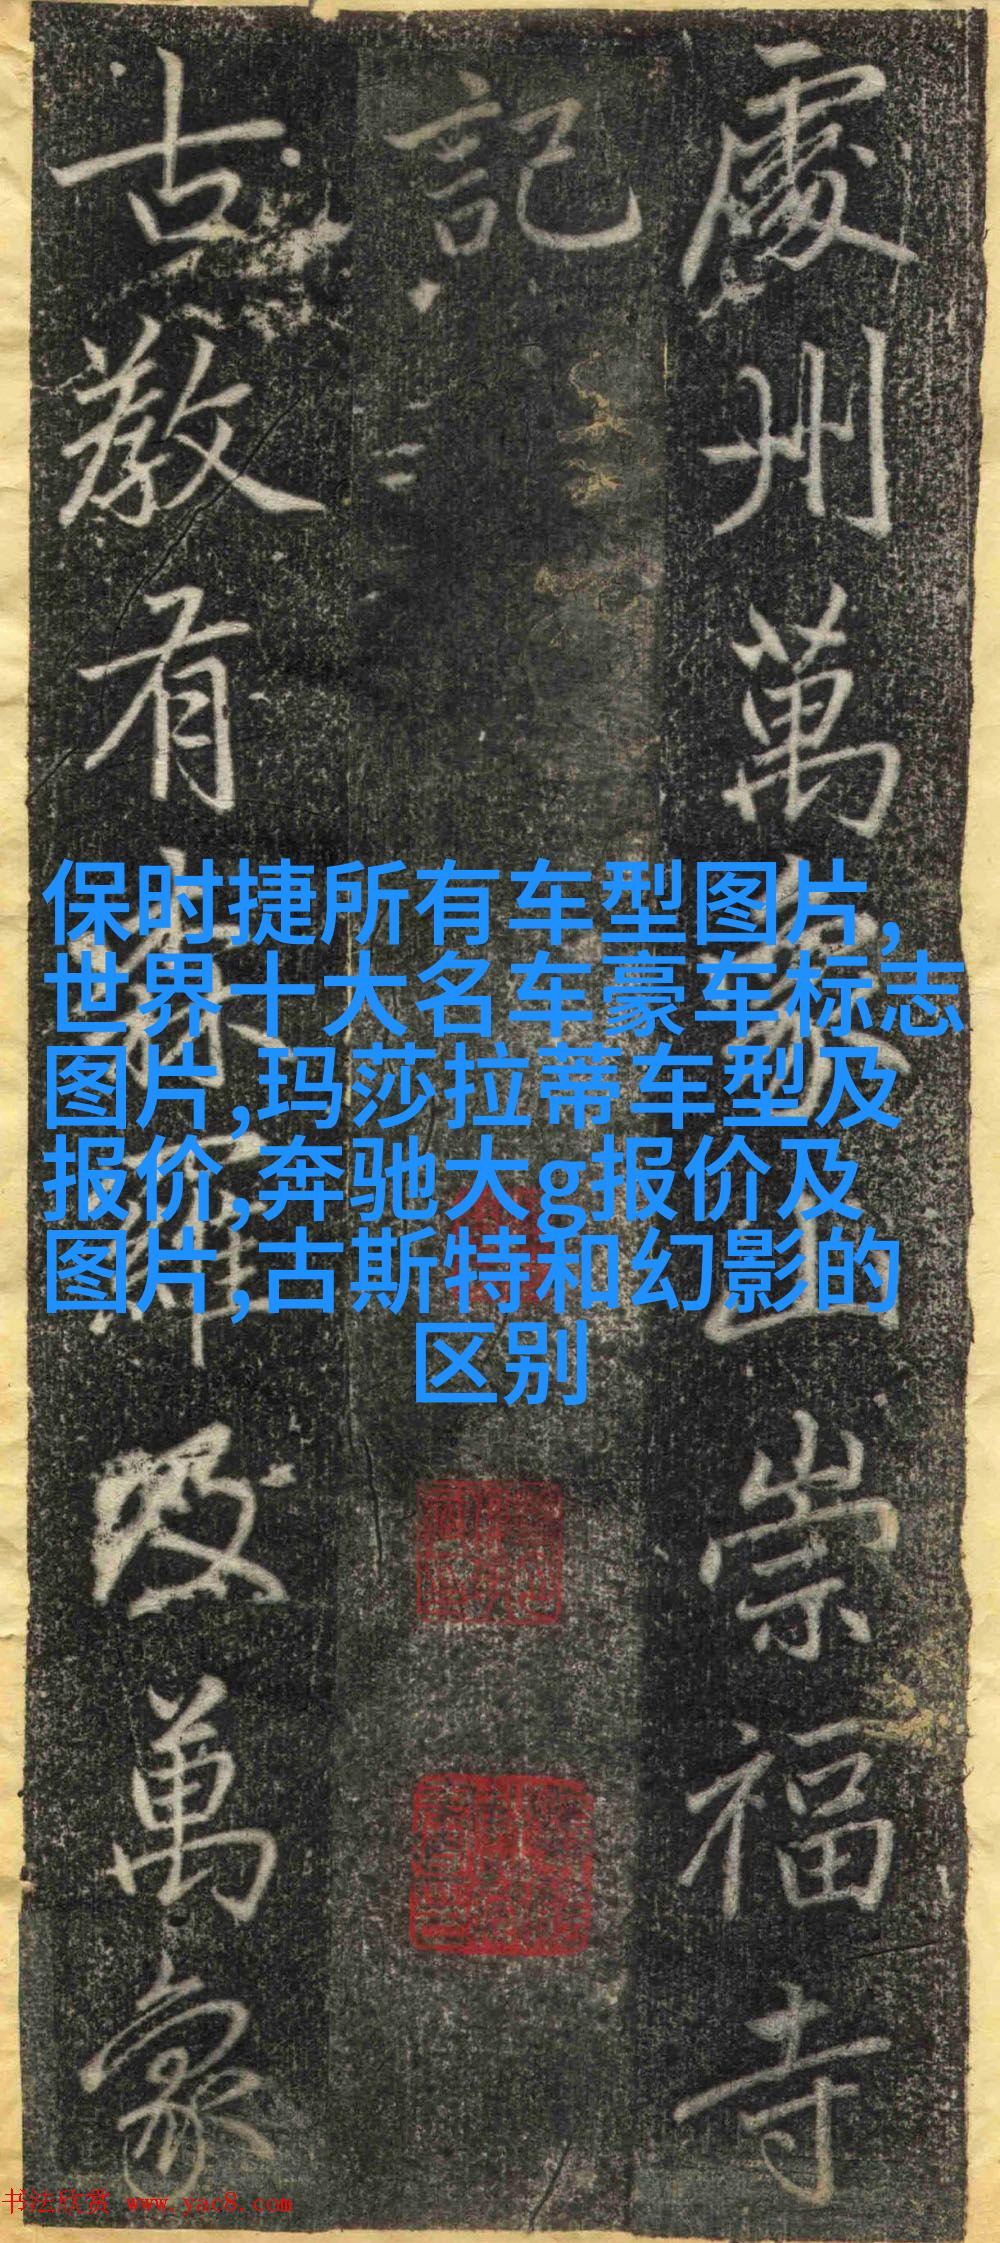 處州萬象山崇福寺
記
古教有森羅及萬象
保时捷所有车型图片,
世界十大名车豪车标志
图片,玛莎拉蒂车型及
报价,奔驰大g报价及
图片,古斯特和幻影的
区别
书法欣赏 www.yac8.com